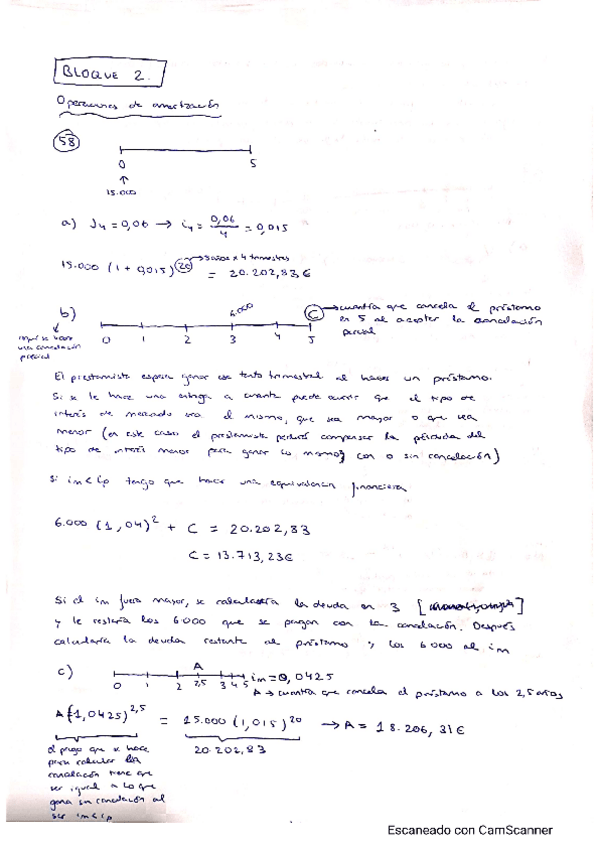 BLOQUE 2.
Operaciones de amortización
58
0 5
15.000
a) J4 = 0,06 → i4 = 0,06/4 = 0,015
15.000 (1 + 0,015)^20 → 5 años x 4 trimestres = 20.202,83 €
b) 6.000 C → cuantía que cancela el préstamo
en 5 al aceptar la cancelación
parcial
aquí se hace
una cancelación
parcial
0 1 2 3 4 5
El prestamista espera ganar ese tanto trimestral al hacer un préstamo.
Si se le hace una entrega a cuenta puede ocurrir que el tipo de
interés de mercado sea el mismo, que sea mayor o que sea
menor (en este caso el prestamista perdirá compensar la pérdida del
tipo de interés menor para ganar lo mismo, con o sin cancelación)
Si im < ip tengo que hacer una equivalencia financiera
6.000 (1,04)^2 + C = 20.202,83
C = 13.713,23€
Si el im fuera mayor, se calcularía la deuda en 3
y le restaría los 6.000 que se pagan con la cancelación. Después
calcularía la deuda restante al préstamo y los 6.000 al im
c) A im = 0,0425
0 1 2 2,5 3 4 5
A → cuantía que cancela el préstamo a los 2,5 años
A (1,0425)^2,5 = 15.000 (1,015)^20 → A = 18.206,31€
20.202,83
el pago que se hace
para calcular la
cancelación tiene que
ser igual a lo que
gana sin cancelación al
ser im < ip
Escaneado con CamScanner